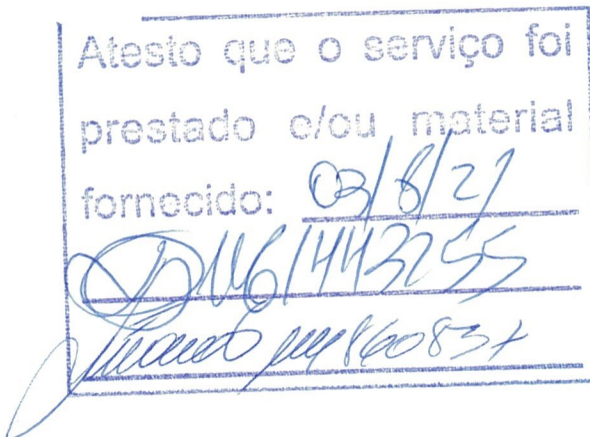 Atesto que o serviço foi
prestado e/ou material
fornecido: 03/8/21
MG1443255